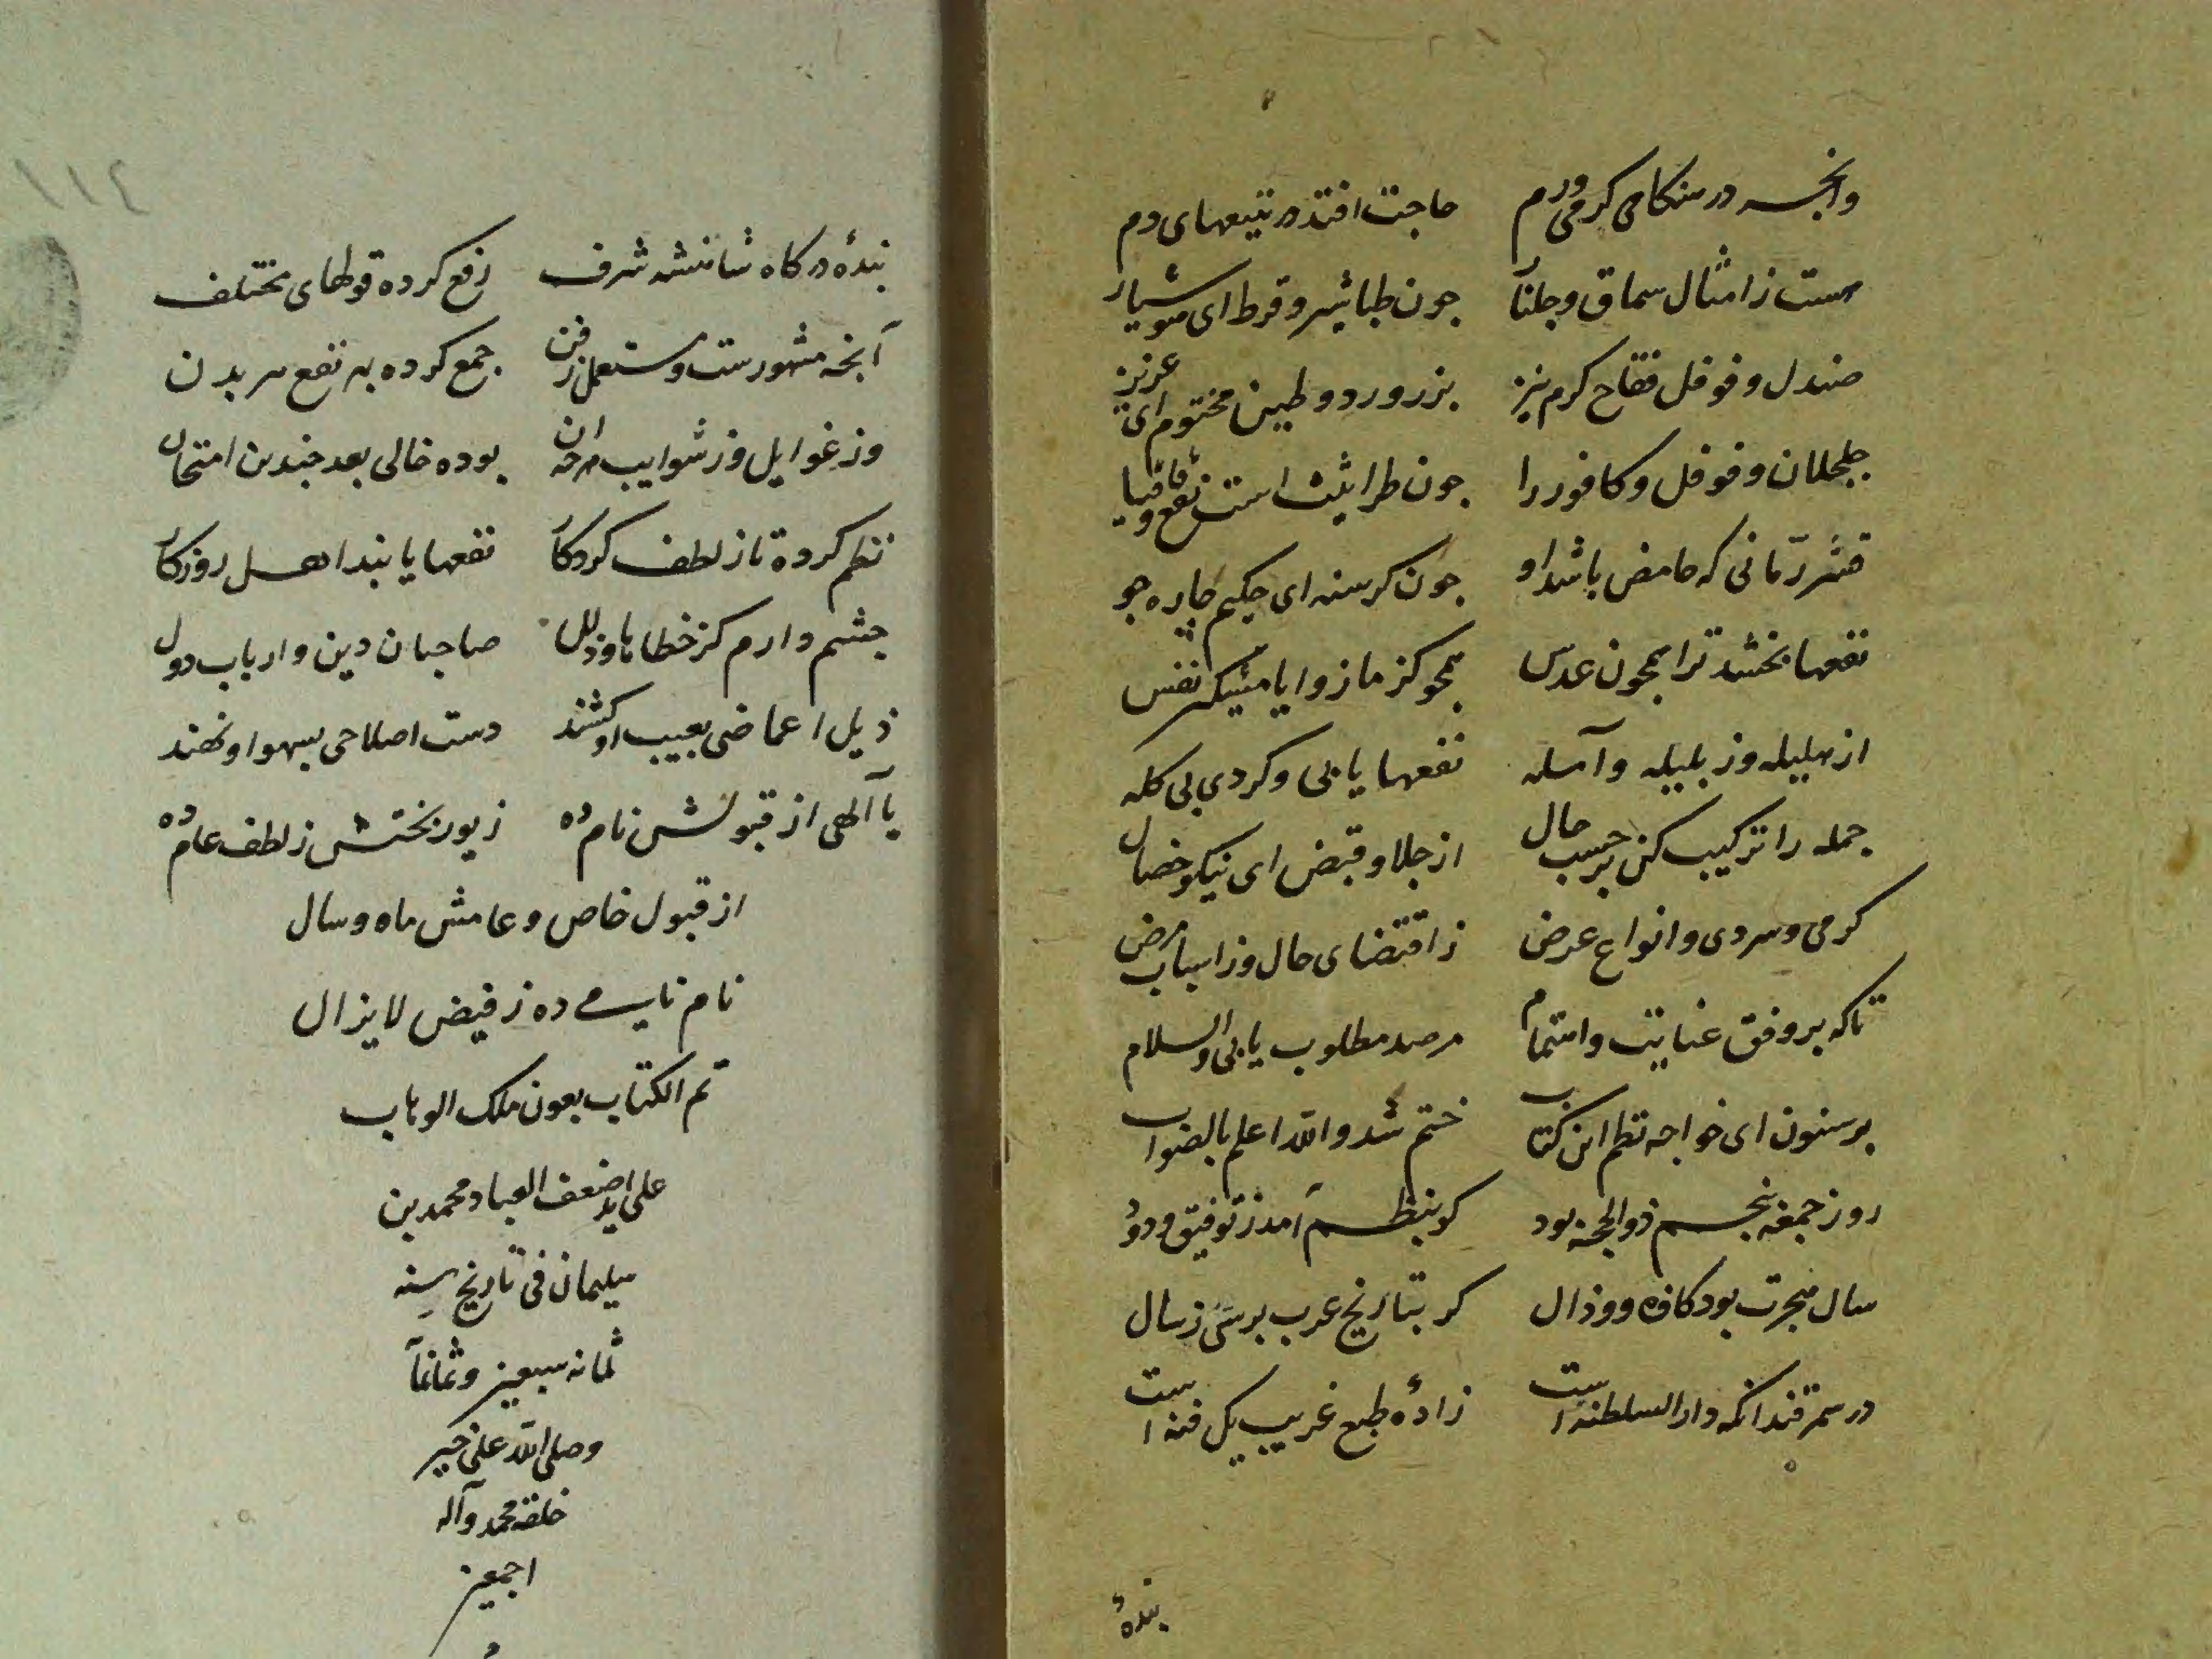 وانچه در هنکام کرمی ورم حاجت افتد در تبیعهای دم
هست ز امثال سماق و جلنار جون طباشیر و قرط ای هوشیار
صندل و فوفل فقاح کرم نیز بزر ورد و طین مختوم ای عزیز
جلجلان و فوفل و کافور را جون طراثیث است نفع و قاقیا
قشر رمانی که حامض باشد او جون کرسنه ای حکیم چاره جو
نفعها بخشد ترا همجون عدس همجو کزمازو ایا مشکین نفس
از هلیله وز بلیله و آمله نفعها یابی و کردی بی کله
جمله را ترکیب کن بر حسب حال از جلا و قبض ای نیکو خصال
کرمی و سردی و انواع عرض ز اقتضای حال وز اسباب مرض
تا که بر وفق عنایت و اهتمام مرصد مطلوب یابی والسلام
بر سنون ای خواجه نظم این کتاب ختم شد والله اعلم بالصواب
روز جمعه پنجم ذوالحجه بود کو بنظم آمد ز توفیق ودود
سال هجرت بود کاف و و ذال کر بتاریخ عرب پرسی ز سال
در سمرقند انکه دار السلطنه است زادهٔ طبع غریب یک فنه است
بندهٔ
۱۱۲
بندهٔ درکاه شاهنشه شرف رفع کرده قولهای مختلف
آنچه مشهورست و مستعمل ز فن جمع کرده بهر نفع هر بدن
وز غوایل وز شوایب هرچه ان بوده خالی بعد چندین امتحان
نظم کرده تا ز لطف کردکار نفعها یابند اهل روزکار
جشم دارم کز خطاها و زلل صاحبان دین و ارباب دول
ذیل اغماضی بعیب او کشند دست اصلاحی بسهو او نهند
یا آلهی از قبولش نام ده زیور بختش ز لطف عام ده
از قبول خاص و عامش ماه و سال
نام نامی ده ز فیض لایزال
تم الکتاب بعون ملک الوهاب
علی ید اضعف العباد محمد بن
سلیمان فی تاریخ سنه
ثمانه سبعین و ثمانمآ
وصلی الله علی خیر
خلقه محمد وآله
اجمعین